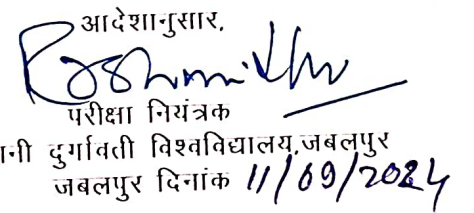 आदेशानुसार,
परीक्षा नियंत्रक
नी दुर्गावती विश्वविद्यालय,जबलपुर
जबलपुर दिनांक 11/09/2024